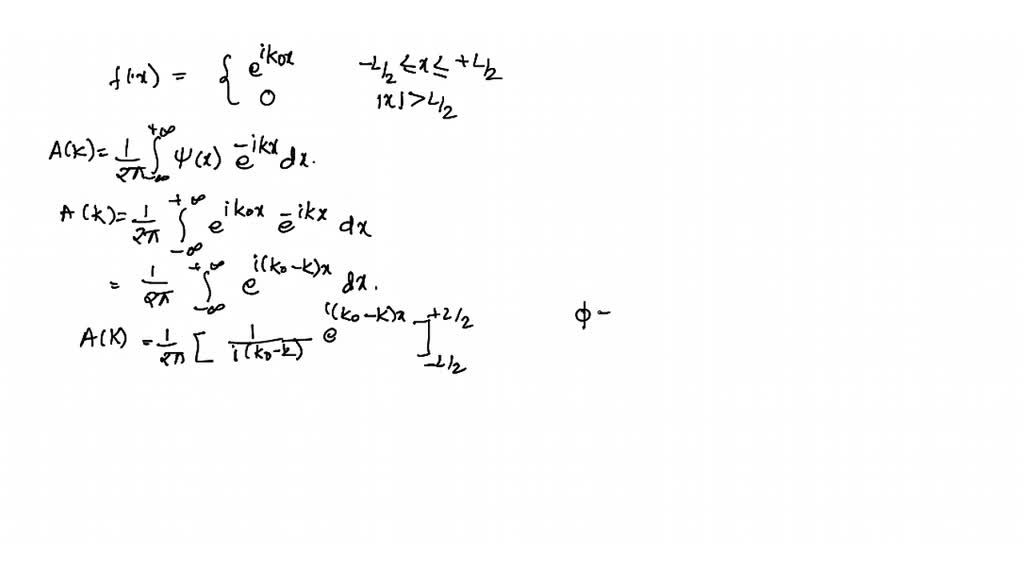 f(x) = { e^{ik₀x} -L/2 ≤ x ≤ +L/2
0 |x| > L/2
A(k) = 1/2π ∫_{-∞}^{+∞} ψ(x) e^{-ikx} dx.
A(k) = 1/2π ∫_{-∞}^{+∞} e^{ik₀x} e^{-ikx} dx
= 1/2π ∫_{-∞}^{+∞} e^{i(k₀-k)x} dx.
A(k) = 1/2π [ 1/i(k₀-k) e^{i(k₀-k)x} ]_{-L/2}^{+L/2}
ϕ -